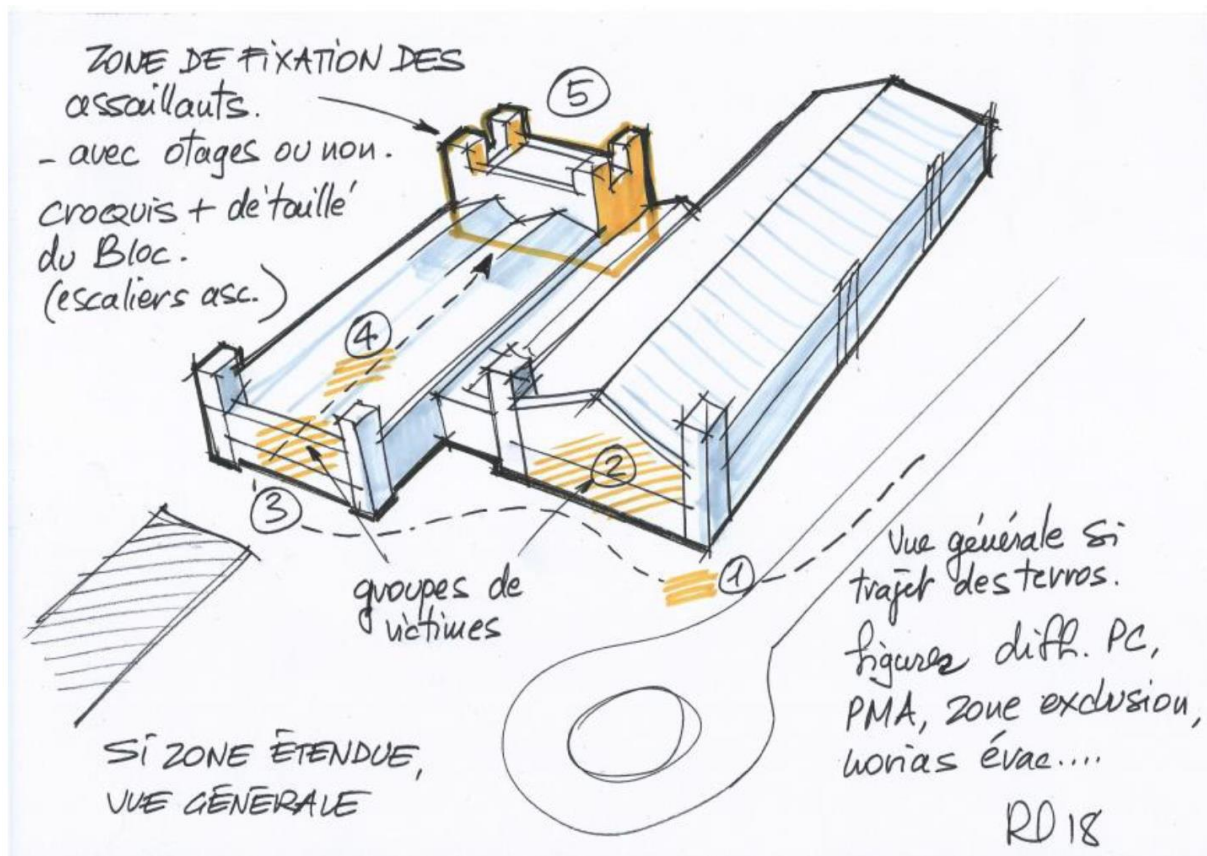 ZONE DE FIXATION DES
assaillants.
- avec otages ou non.
croquis + détaillé
du Bloc.
(escaliers asc.)
5
4
3
2
1
groupes de
victimes
Vue générale si
trajet des terros.
figurer diff. PC,
PMA, zone exclusion,
norias évac....
SI ZONE ÉTENDUE,
VUE GÉNÉRALE
RD 18